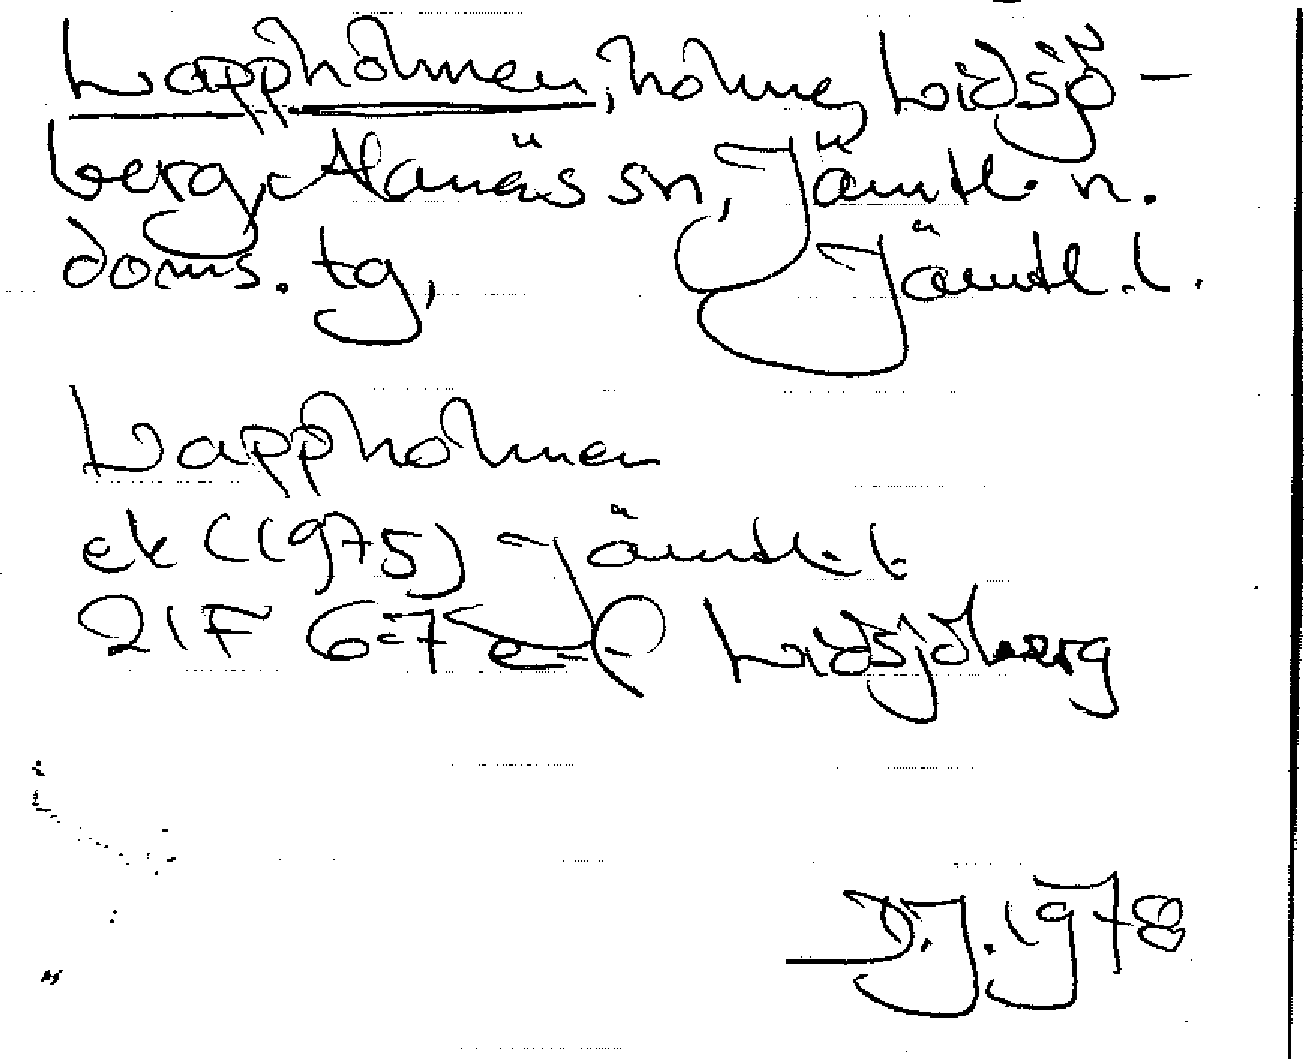 Lappholmen, holme, Lidsjö-
berg, Alanäs sn, Jämtl. n.
doms. tg, Jämtl. l.
Lappholmen
ek (1975) Jämtl. l.
21F 6-7 e-f Lidsjöberg
D.J. 1978